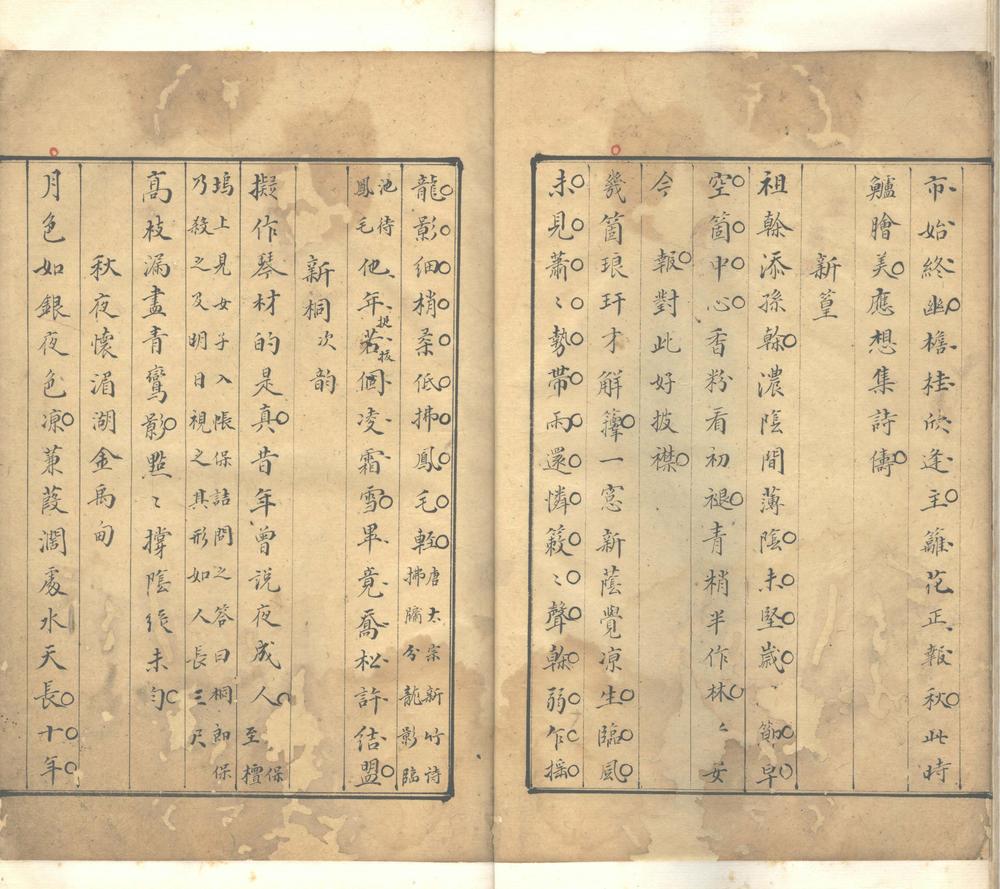 市始終幽檐桂欣逢主籬花正報秋此時
鱸膾美應想集詩儔
新篁
祖榦添孫榦濃陰間薄陰未堅歲節早
空箇中心香粉看初褪青梢半作林〻女
今報對此好披襟
幾箇琅玕才解籜一窓新蔭覺凉生臨風
未見蕭〻勢帶雨還憐簌〻聲榦弱乍搖
龍影細梢柔低拂鳳毛輕唐太宗新竹詩拂牖分龍影臨
池待鳳毛他年若個凌霜雪畢竟喬松許結盟
挺拔
新桐次韵
擬作琴材的是真昔年曾説夜成人至保檀
塢上見女子入帳保詰問之答曰桐郎保
乃殺之及明日視之其形如人長三尺
高枝漏盡青鸞影㸃〻撐陰綠未勻
秋夜懷湄湖金禹甸
月色如銀夜色凉蒹葭濶處水天長十年